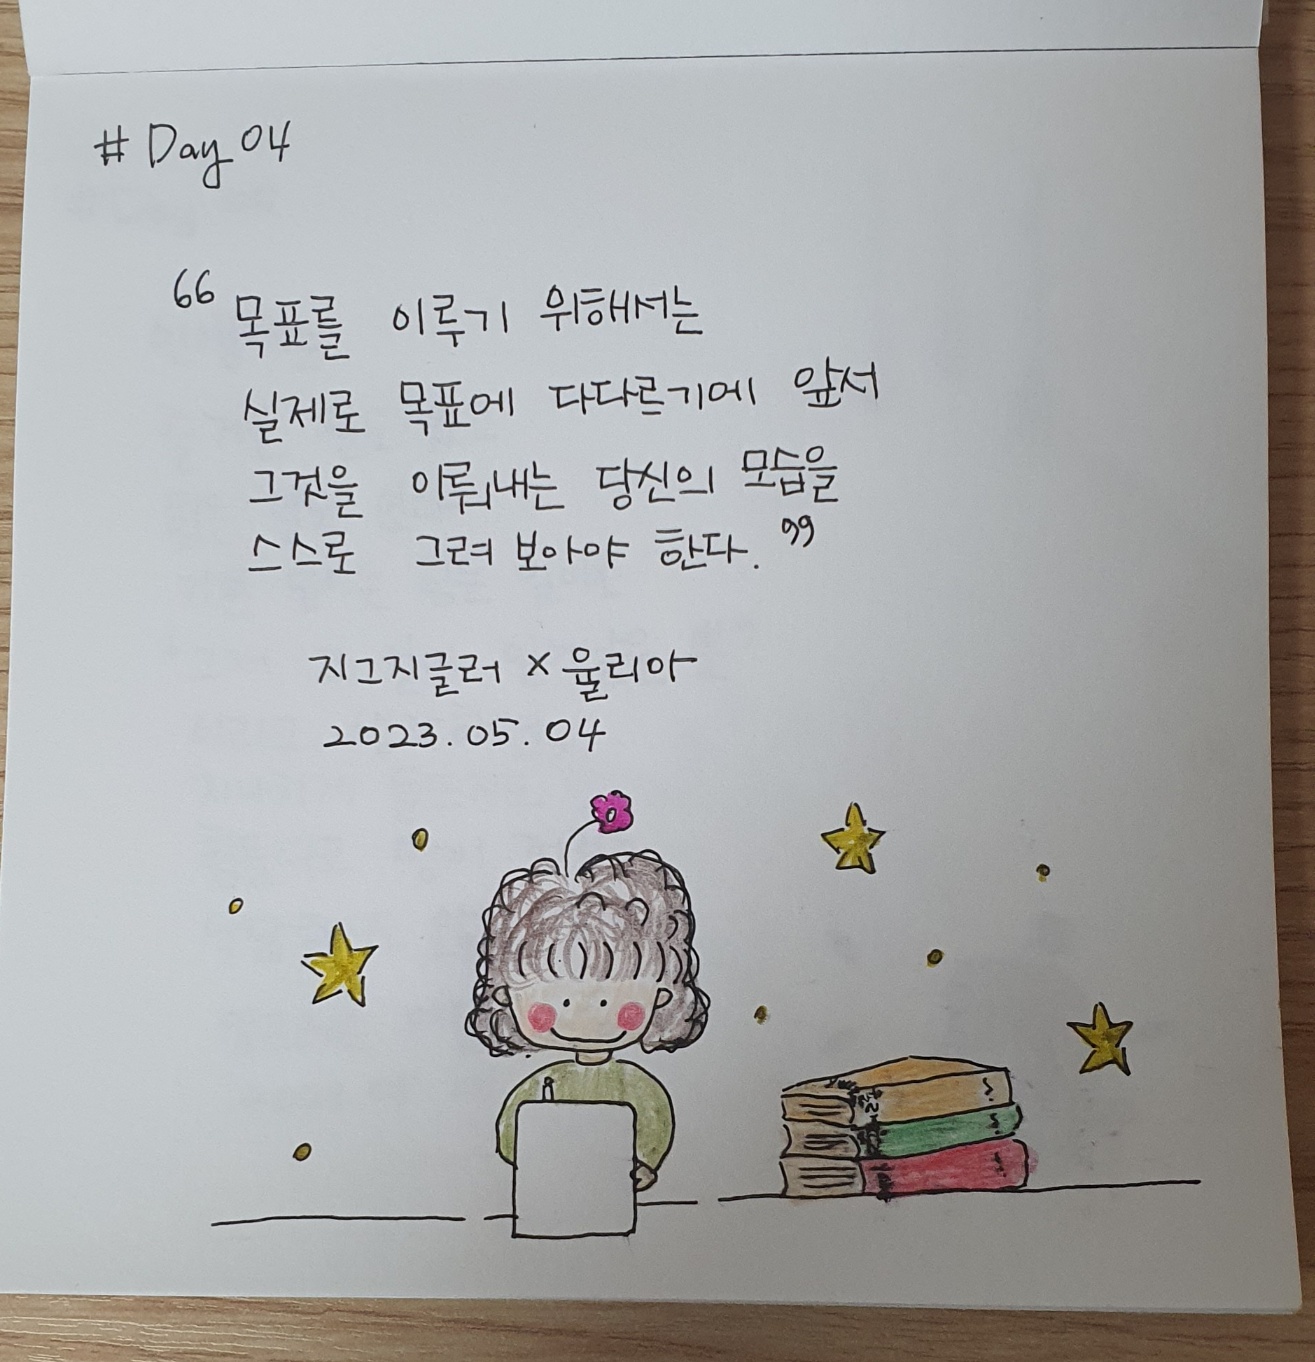 # Day 04
“목표를 이루기 위해서는
실제로 목표에 다다르기에 앞서
그것을 이뤄내는 당신의 모습을
스스로 그려 보아야 한다.”
지그지글러 x 율리아
2023.05.04